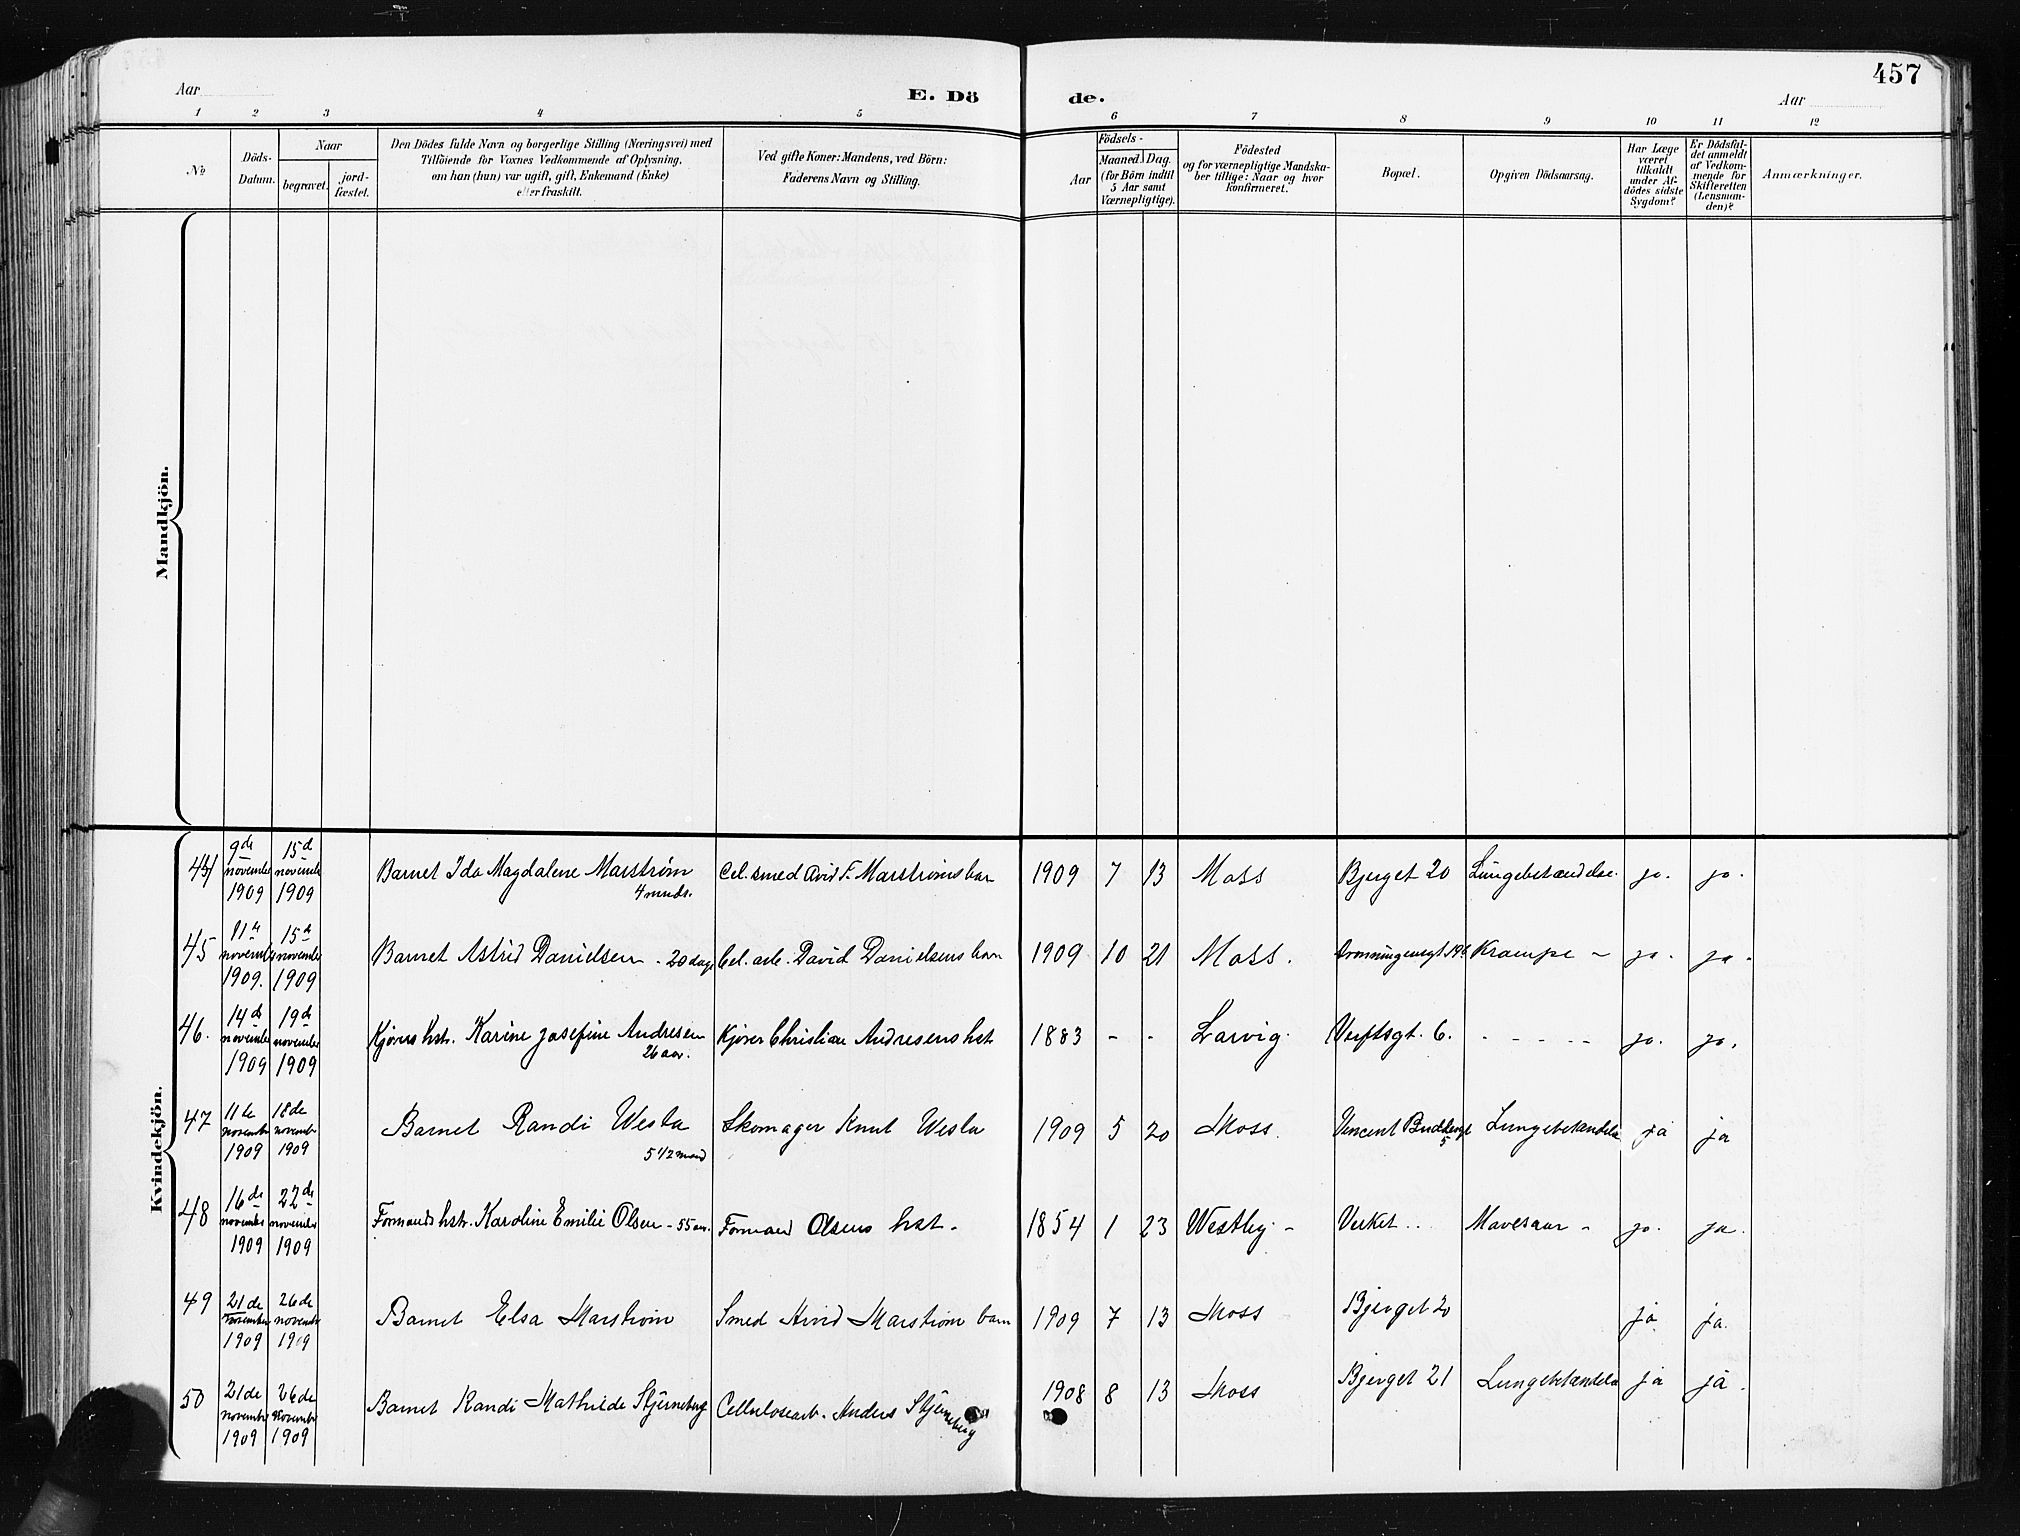 457
Aar
E. Dö
de.
Aar
1 2 3 4 5 6 7 8 9 10 11 12
No
Döds-
Datum.
Naar
begravet.
jord-
fæstet.
Den Dödes fulde Navn og borgerlige Stilling (Næringsvei) med
Tilföiende for Voxnes Vedkommende af Oplysning,
om han (hun) var ugift, gift, Enkemand (Enke)
eller fraskilt.
Ved gifte Koner: Mandens, ved Börn:
Faderens Navn og Stilling.
Födsels-
Aar
Maaned.
Dag.
(for Börn indtil
5 Aar samt
Værnepligtige).
Födested
og for værnepligtige Mandska-
ber tillige: Naar og hvor
konfirmeret.
Bopæl.
Opgiven Dödsaarsag.
Har Læge
været
tilkaldt
under Af-
dödes sidste
Sygdom?
Er Dödsfal-
det anmeldt
af Vedkom-
mende for
Skifteretten
(Lensman-
den)?
Anmærkninger.
Mandkjön.
Kvindekjön.
44 9de november 1909 15d november 1909 Barnet Ida Magdalene Marstrøm 4 mnds. Cel. smed Arvid F. Marstrøms barn 1909 7 13 Moss Bjerget 20 Lungebetændelse. ja. ja.
45 11te november 1909. 15d november 1909 Barnet Astrid Danielsen - 20 dage Cel. arb. David Danielsens barn 1909 10 21 Moss. Dronningensgt 19b Krampe - ja. ja.
46. 14de november 1909 19de november 1909 Kjørers hst. Karine Josefine Andresen 26 aar. Kjører Christian Andresens hst 1883 - - Larvig. Verftsgt. 6. - - - - - ja. ja.
47 11te november 1909 18de november 1909 Barnet Randi Wesla 5 1/2 maned Skomager Knut Wesla 1909 5 20 Moss. Vincent Budbergt 5 Lungebetændelse ja ja
48 16de november 1909 22de november 1909 Formands hst. Karoline Emilie Olsen - 55 aar. Formand Olsens hst - 1854 1 23 Westby - Verket .. Mavesaar - ja. ja.
49 21de november 1909 26de november 1909 Barnet Elsa Marstrøm Smed Arvid Marstrøm barn 1909 7 13 Moss Bjerget 20 ja ja.
50 21de november 1909 26de november 1909 Barnet Randi Mathilde Stjerneberg Cellulosearb. Anders Stjerneberg 1908 8 13 Moss Bjerget 21 Lungebetændelse ja ja.